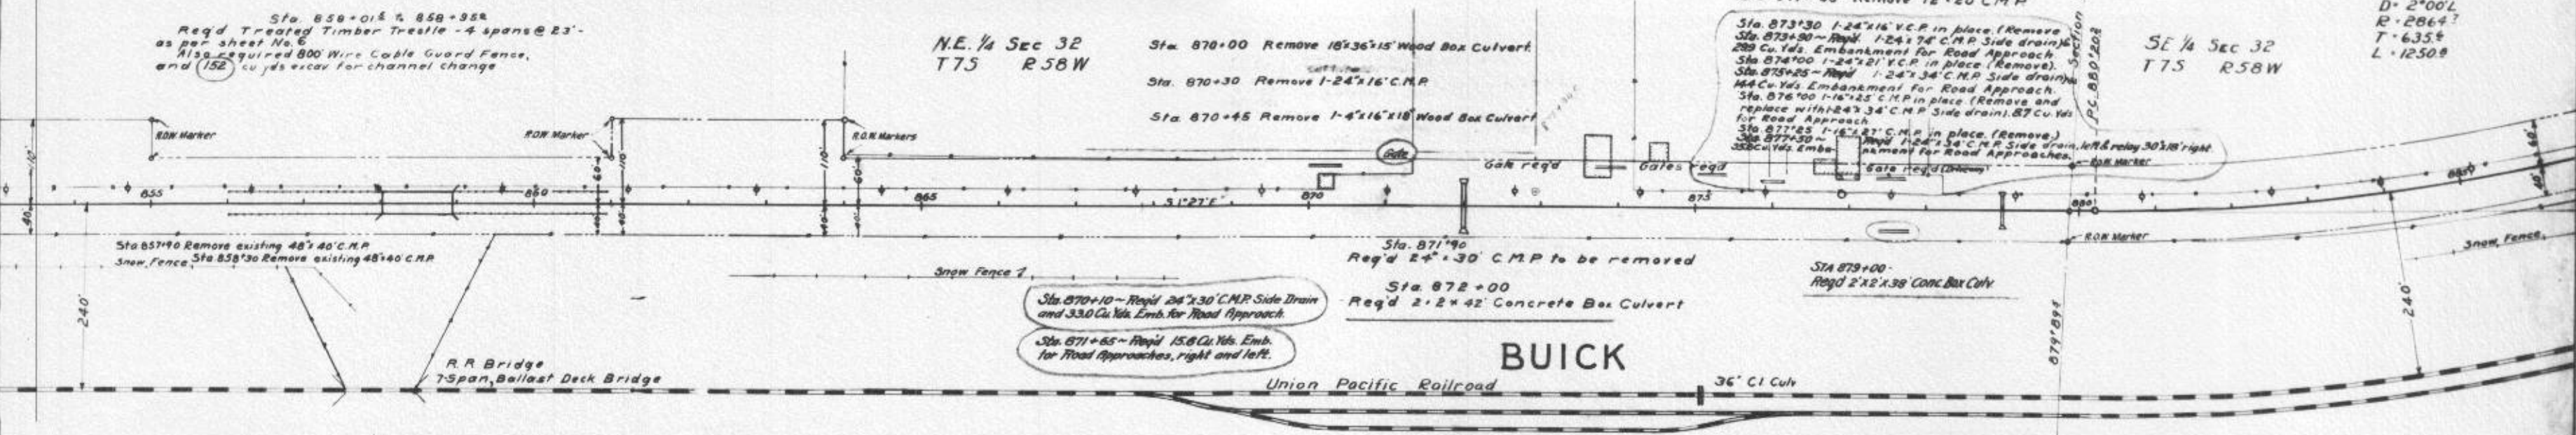 Sta. 858+01⁵ to 858+95⁵
Req'd Treated Timber Trestle - 4 spans @ 23'-
as per sheet No. 6
Also required 800' Wire Cable Guard Fence,
and 152 cu yds excav for channel change
N.E. ¼ SEC 32
T 7 S R 58 W
Sta 870+00 Remove 18"x36"x15' Wood Box Culvert.
Sta. 870+30 Remove 1-24"x16' C.M.P.
Sta 870+45 Remove 1-4"x16"x18' Wood Box Culvert
Remove 12"x20' C.M.P
Sta. 873+30 1-24"x16' V.C.P. in place (Remove
Sta. 873+90 ~ Req'd. 1-24"x74' C.M.P. Side drain)&
299 Cu. Yds. Embankment for Road Approach.
Sta 874+00 1-24"x21' V.C.P. in place (Remove).
Sta. 875+25 ~ Req'd 1-24"x34' C.M.P. Side drain)&
144 Cu Yds. Embankment for Road Approach.
Sta. 876+00 1-16"x25' C.M.P. in place (Remove and
replace with 1-24"x34' C.M.P. Side drain). 87 Cu. Yds
for Road Approach
Sta 877+25 1-16"x27' C.M.P. in place. (Remove.)
Sta 877+50 ~ Req'd 1-24"x34' C.M.P. Side drain, left & relay 30"x18' right.
358 Cu. Yds. Embankment for Road Approaches.
Section
P.C. 880+20²
SE ¼ SEC 32
T 7 S R 58 W
D = 2°00' L
R = 2864
T = 635
L = 1250
R.O.W. Marker
R.O.W. Marker
R.O.W. Markers
Gate
Gate req'd
Gates req'd
Gate req'd
R.O.W. Marker
110'
60'
110'
110'
60'
60'
855
860
865
S 1°27' E
870
875
880
885
40'
40'
40'
40'
40'
40'
Sta 857+90 Remove existing 48"x40' C.M.P.
Snow Fence Sta 858+30 Remove existing 48"x40' C.M.P.
Snow Fence
Sta. 871+90
Req'd 24" x 30' C.M.P to be removed
Sta. 872+00
Req'd 2' x 2' x 42' Concrete Box Culvert
STA 879+00-
Reqd 2'x2'x38' Conc. Box Culv.
R.O.W. Marker
Snow Fence
Sta. 870+10 ~ Req'd 24"x30' C.M.P. Side Drain
and 33.0 Cu. Yds. Emb. for Road Approach.
Sta. 871+65 ~ Req'd 15.8 Cu. Yds. Emb.
for Road Approaches, right and left.
240'
240'
R.R Bridge
7-Span, Ballast Deck Bridge
BUICK
Union Pacific Railroad
36" C.I Culv
879+89⁴